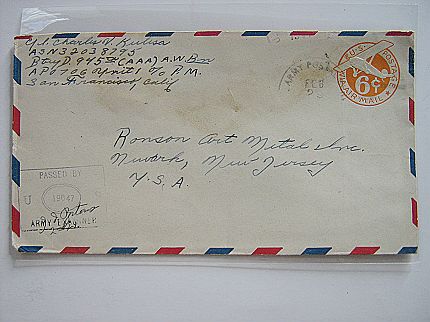 Cpl. Charlie V. Kulisa
ASN 32038795
Btry D. 945th (AAA) A.W. Bn
APO 706 Unit 1 c/o P.M.
San Francisco, Calif
ARMY POST
FEB
U.S. POSTAGE
6¢
VIA AIR MAIL
Ronson Art Metal Inc.
Newark, New Jersey
U.S.A.
PASSED BY
U S
19047
ARMY EXAMINER